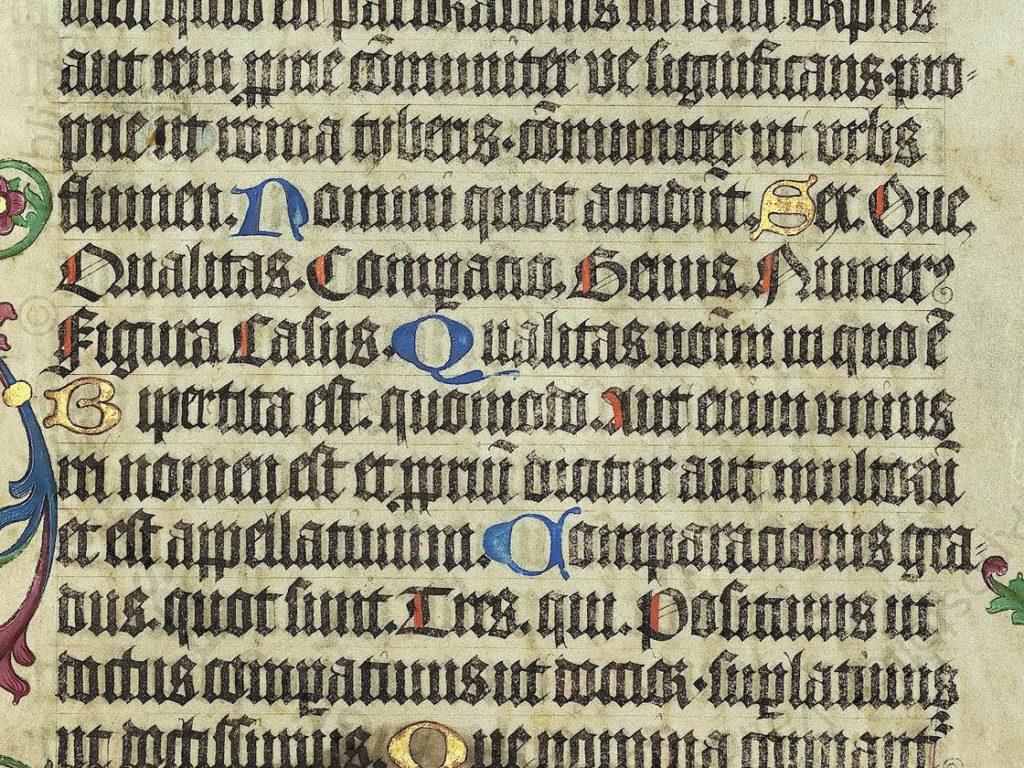 aut rem. ꝓprie cõmuniter ve significans. pro⸗
prie ut roma tyberis. cõmuniter ut urbs
flumen. Nomini quot accidũt. Sex. Que.
Qualitas. Comparacio. Genus. Numerꝰ
Figura Casus. Qualitas noĩm in quo ẽ
Bipertita est. quomodo Aut enim unius
rei nomen est et ꝓpriũ dicitur aut multorũ
et est appellatiuum. Comparacionis gra⸗
dus. quot sunt. Tres. qui. Positiuus ut
doctus comparatiuus ut doctior. suplatiuus
ut doctissimus. Que nomina